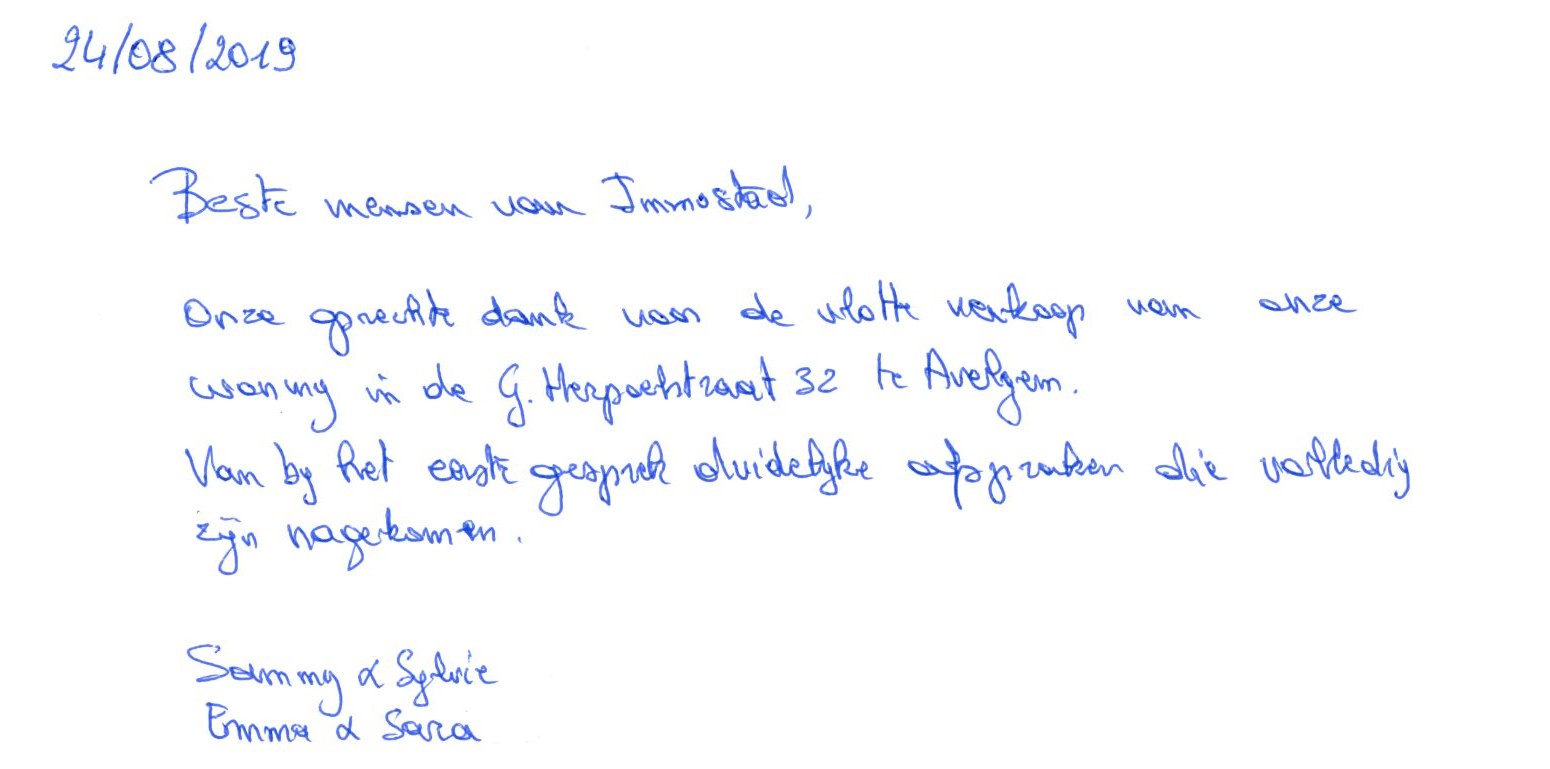 24/08/2019
Beste mensen van Immostad,
Onze oprechte dank voor de vlotte verkoop van onze
woning in de G. Herpoelstraat 32 te Avelgem.
Van bij het eerste gesprek duidelijke afspraken die volledig
zijn nagekomen.
Sammy & Sylvie
Emma & Sara